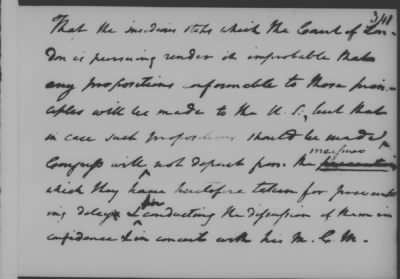 3/48
That the insidious steps which the Court of Lon-
don is pursuing render it improbable that
any propositions conformable to those prin-
ciples will be made to the U. S., but that
in case such propositions should be made
Congress will not depart from the measures
which they have heretofore taken for prevent-
ing delay & for conducting the discussion of them in
confidence & in concert with his M. C. M.